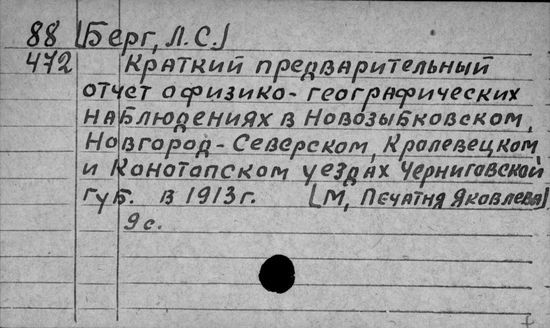 88 [Берг, Л.С.]
472 Краткий предварительный
отчет о физико-географических
наблюдениях в Новозыбковском,
Новгород-Северском, Кролевецком
и Конотопском уездах Черниговской
губ. в 1913 г. [М, Печатня Яковлева]
9 с.